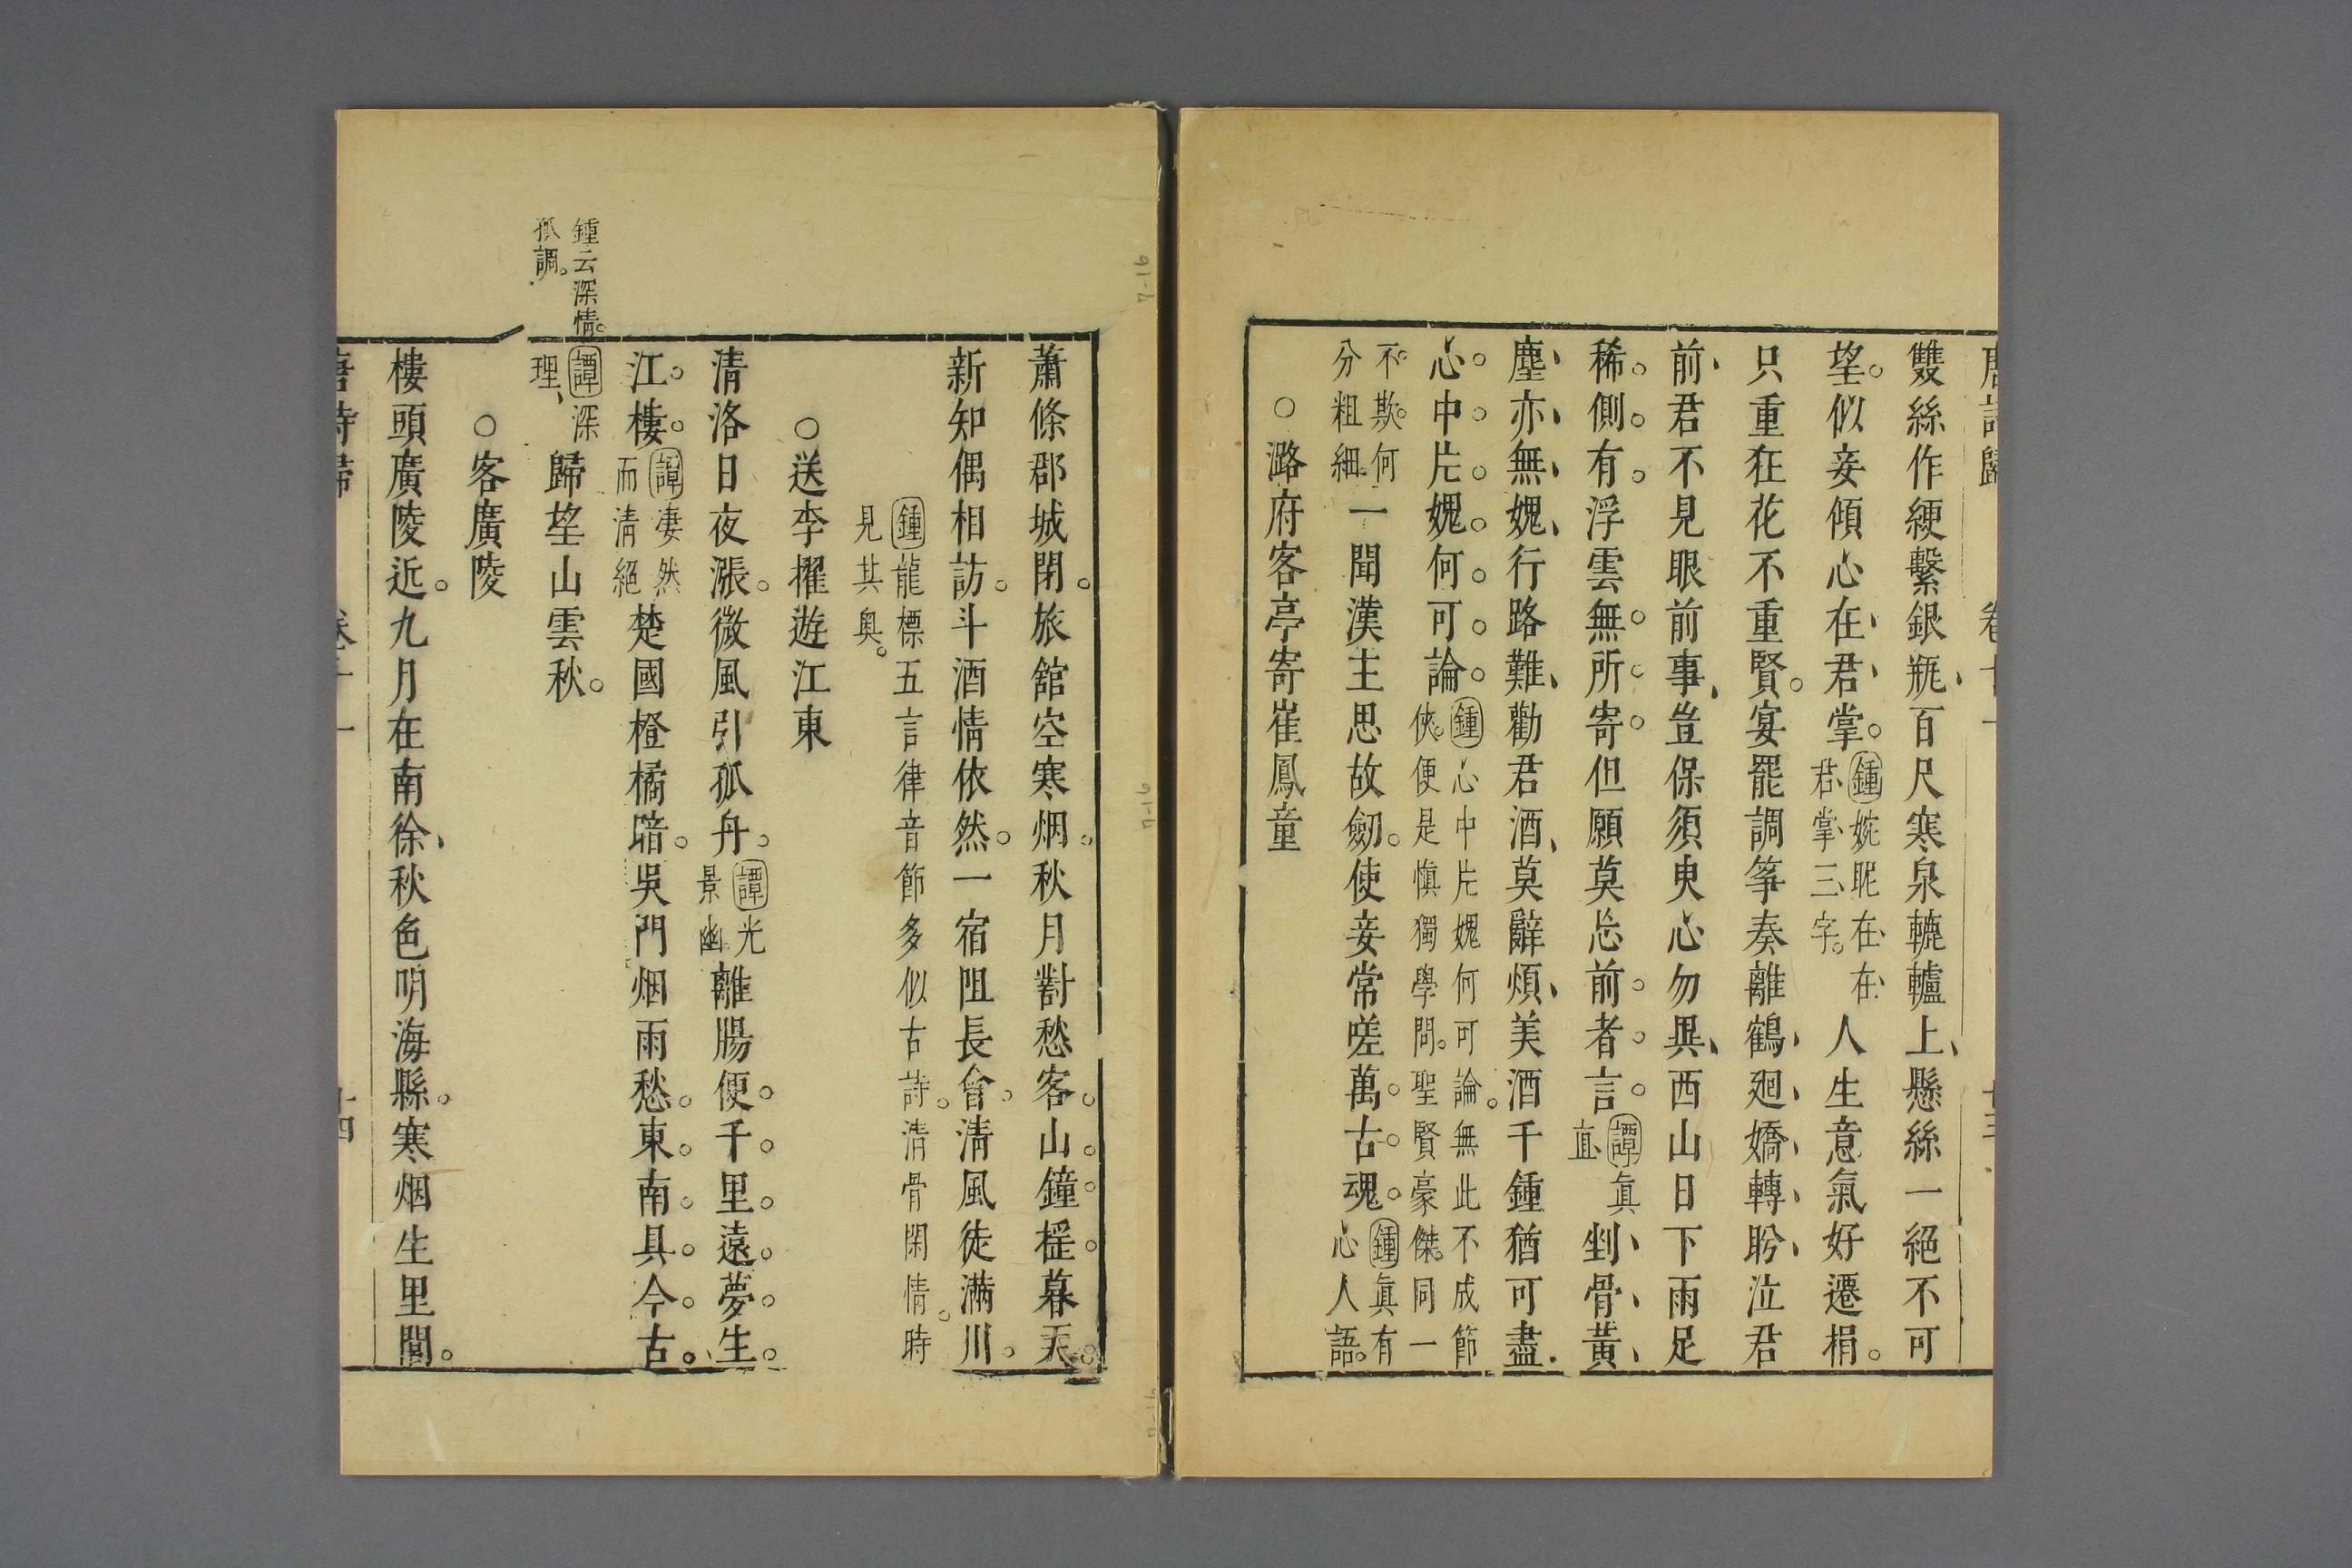 唐詩歸　卷十一　十三
雙絲作綆繫銀瓶、百尺寒泉轆轤上、懸絲一絕不可
望。似妾傾心在、君、掌。鍾婉昵在、在、君、掌、三、字。人生意氣好遷捐。
只重狂花不重賢。宴罷調筝奏離鶴、廻、嬌、轉、盻、泣君
前、君不見眼前前事、豈保須臾心勿異、西山日下雨足
稀。側。有。浮雲無。所。寄。但願莫忘前。者。言。譚眞直、剉、骨、黃、
塵、亦、無、媿、行路難、勸君酒、莫辭煩、美酒千鍾猶可盡.
心。中。片。媿。何。可。論。鍾心中片媿何可論。無此不成節俠。便是愼獨學問。聖賢豪傑。同一
不。欺。何分粗細。一聞漢主思故劒。使妾常嗟萬。古。魂。鍾眞有心人語。
○潞府客亭寄崔鳳童
蕭條郡城閉。旅舘空寒烟。秋月對愁客。山。鐘。搖。暮天。
新知偶相訪。斗酒情依然。一宿阻長會。淸風徒滿川。
鍾龍標五言律音節多似古詩。淸骨閑情。時見其奧。
○送李擢遊江東
淸洛日夜漲。微風引孤舟。譚光景幽。離腸便。千。里。遠。夢。生。
江。樓。譚凄然而淸絕楚國橙橘暗。吳門烟雨愁。東。南。具。今。古。
鍾云深情。孤調。
譚深理、歸望山雲秋。
○客廣陵
樓頭廣陵近。九月在南徐、秋色明海縣。寒烟生里閭。
唐詩歸　卷十一　十四